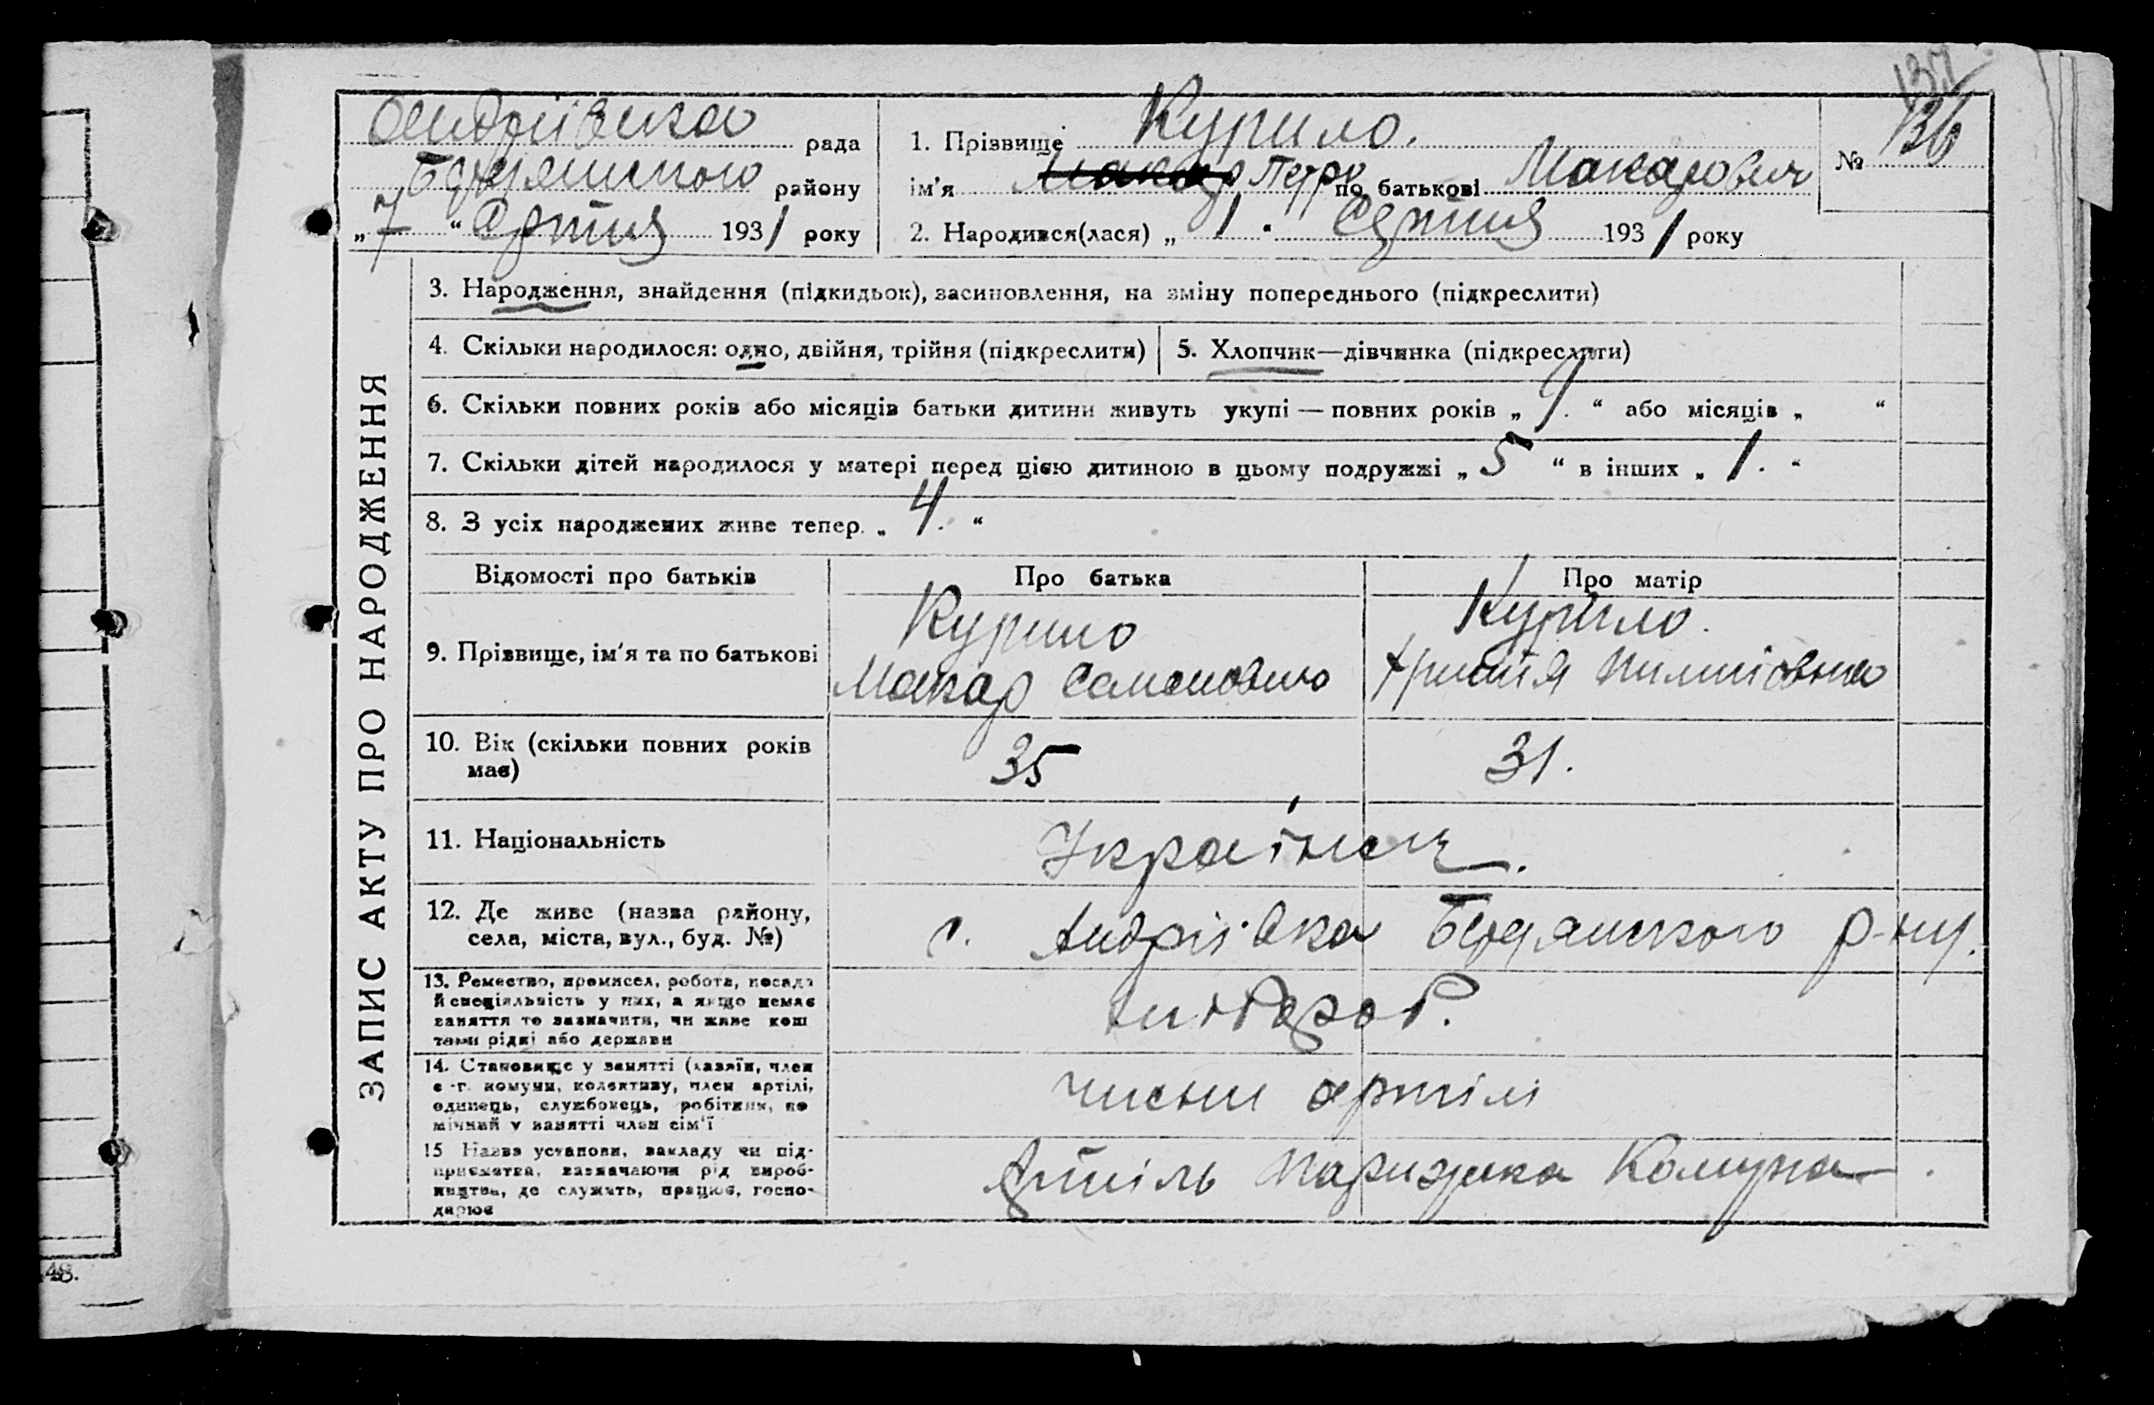 137
Андріївка рада
Бердянського району
„ 7 “ Серпня 1931 року
1. Прізвище Курило.
ім'я Макар Петро по батькові Макарович
№ 136
2. Народився(лася) „ 1 “ Серпня 1931 року
ЗАПИС АКТУ ПРО НАРОДЖЕННЯ
3. Народження, знайдення (підкидьок), засиновлення, на зміну попереднього (підкреслити)
4. Скільки народилося: одно, двійня, трійня (підкреслити)
5. Хлопчик—дівчинка (підкреслити)
6. Скільки повних років або місяців батьки дитини живуть укупі — повних років „ 9. “ або місяців „ “
7. Скільки дітей народилося у матері перед цією дитиною в цьому подружжі „ 5 “ в інших „ 1. “
8. З усіх народжених живе тепер „ 4. “
Відомості про батьків
Про батька
Про матір
9. Прізвище, ім'я та по батькові
Курило
Макар Семенович
Курило.
Пилипівна
10. Вік (скільки повних років
має)
35
31.
11. Національність
Українці.
12. Де живе (назва району,
села, міста, вул., буд. №)
с. Андріївка Бердянського р-ну.
13. Ремество, промисел, робота, посада
й спеціяльність у них, а якщо немає
заняття то зазначити, чи живе кош
тами рідні або держави
хлібороб.
14. Становище у занятті (хазяїн, член
с.-г. комуни, колективу, член артілі,
одинець, службовець, робітник, по
мічний у занятті член сім'ї
члени артілі
15 Назва установи, закладу чи під-
приємства, зазначаючи рід вироб-
ництва, де служить, працює, госпо-
дарює
Артіль Паризька Комуна
48.